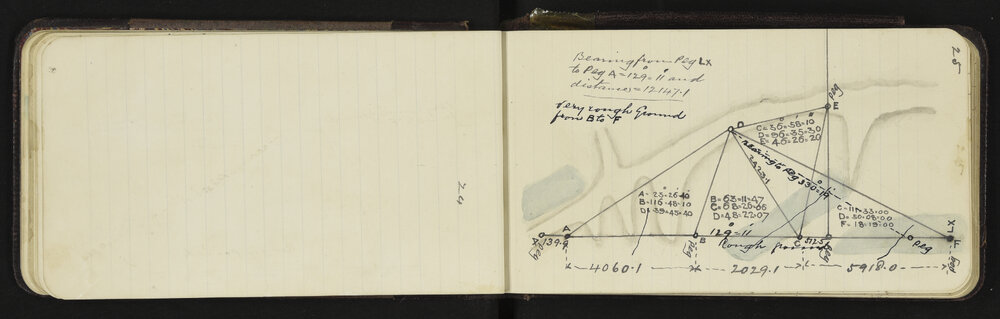 24
25
Bearing from Peg LX
to Peg A = 129° 11' and
distance = 12147.1
Very rough Ground
from B to F
Peg
E
D
C = 36 = 58 = 10
D = 96 = 35 = 30
E = 46 = 26 = 20
bearing to Peg 330=14
2423.1
A - 23-26-40
B = 116-48-10
D = 39=45-40
B = 63=11-47
C = 68=26-06
D = 48=22-07
C = 111-33-00
D = 30-08-00
F = 18-19-00
LX
X 139.9 A B 129=11 C 5125 Peg F
Peg Peg Rough ground Peg Peg
4060.1 2029.1 5918.0